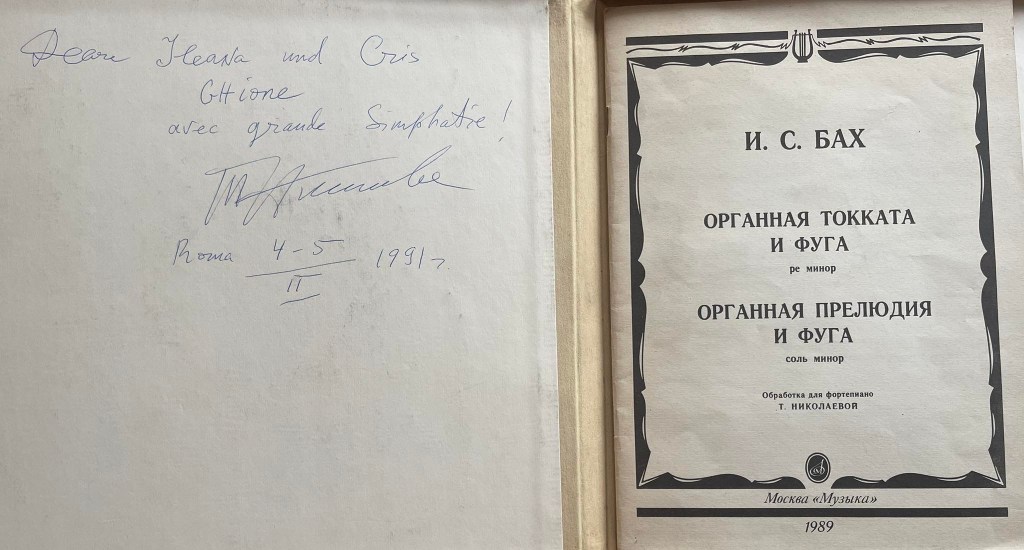 Dear Ileana und Cris
GHione
avec grande Simphatie!
Roma 4-5 1991 г.
II
И. С. БАХ
ОРГАННАЯ ТОККАТА
И ФУГА
ре минор
ОРГАННАЯ ПРЕЛЮДИЯ
И ФУГА
соль минор
Обработка для фортепиано
Т. НИКОЛАЕВОЙ
Москва «Музыка»
1989